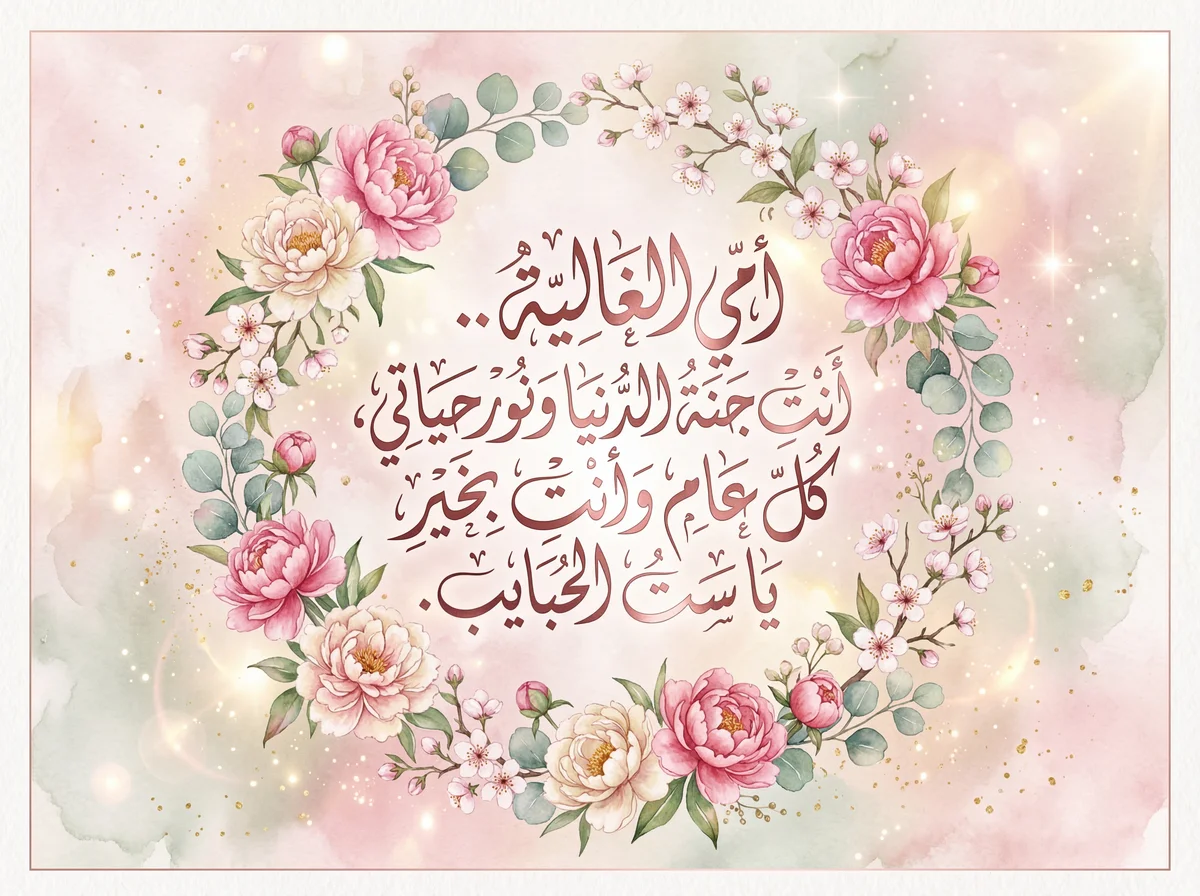 أُمّي الغَالِيَّةُ..
أَنْتْ جَنَةُ الدُّنيَا وَنُوْرحيَاتِي،
كُلَّ عَامِ وَأَنْتْ بِخَيْرِ
يَا سَتُ الحُبَايب.